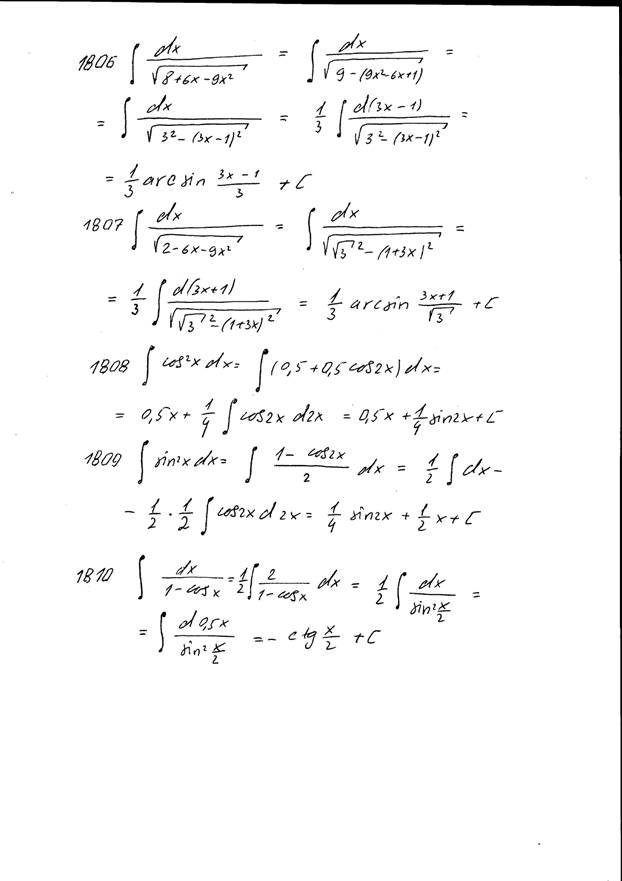 1806 ∫ dx/√(8+6x-9x²) = ∫ dx/√(9-(9x²-6x+1)) =
= ∫ dx/√(3²-(3x-1)²) = 1/3 ∫ d(3x-1)/√(3²-(3x-1)²) =
= 1/3 arcsin (3x-1)/3 + C
1807 ∫ dx/√(2-6x-9x²) = ∫ dx/√(√3²-(1+3x)²) =
= 1/3 ∫ d(3x+1)/√(√3²-(1+3x)²) = 1/3 arcsin (3x+1)/√3 + C
1808 ∫ cos²x dx = ∫ (0,5+0,5cos2x) dx =
= 0,5x + 1/4 ∫ cos2x d2x = 0,5x + 1/4 sin2x + C
1809 ∫ sin²x dx = ∫ (1-cos2x)/2 dx = 1/2 ∫ dx -
- 1/2 · 1/2 ∫ cos2x d2x = 1/4 sin2x + 1/2 x + C
1810 ∫ dx/(1-cosx) = 1/2 ∫ 2/(1-cosx) dx = 1/2 ∫ dx/(sin² x/2) =
= ∫ d0,5x/(sin² x/2) = - ctg x/2 + C